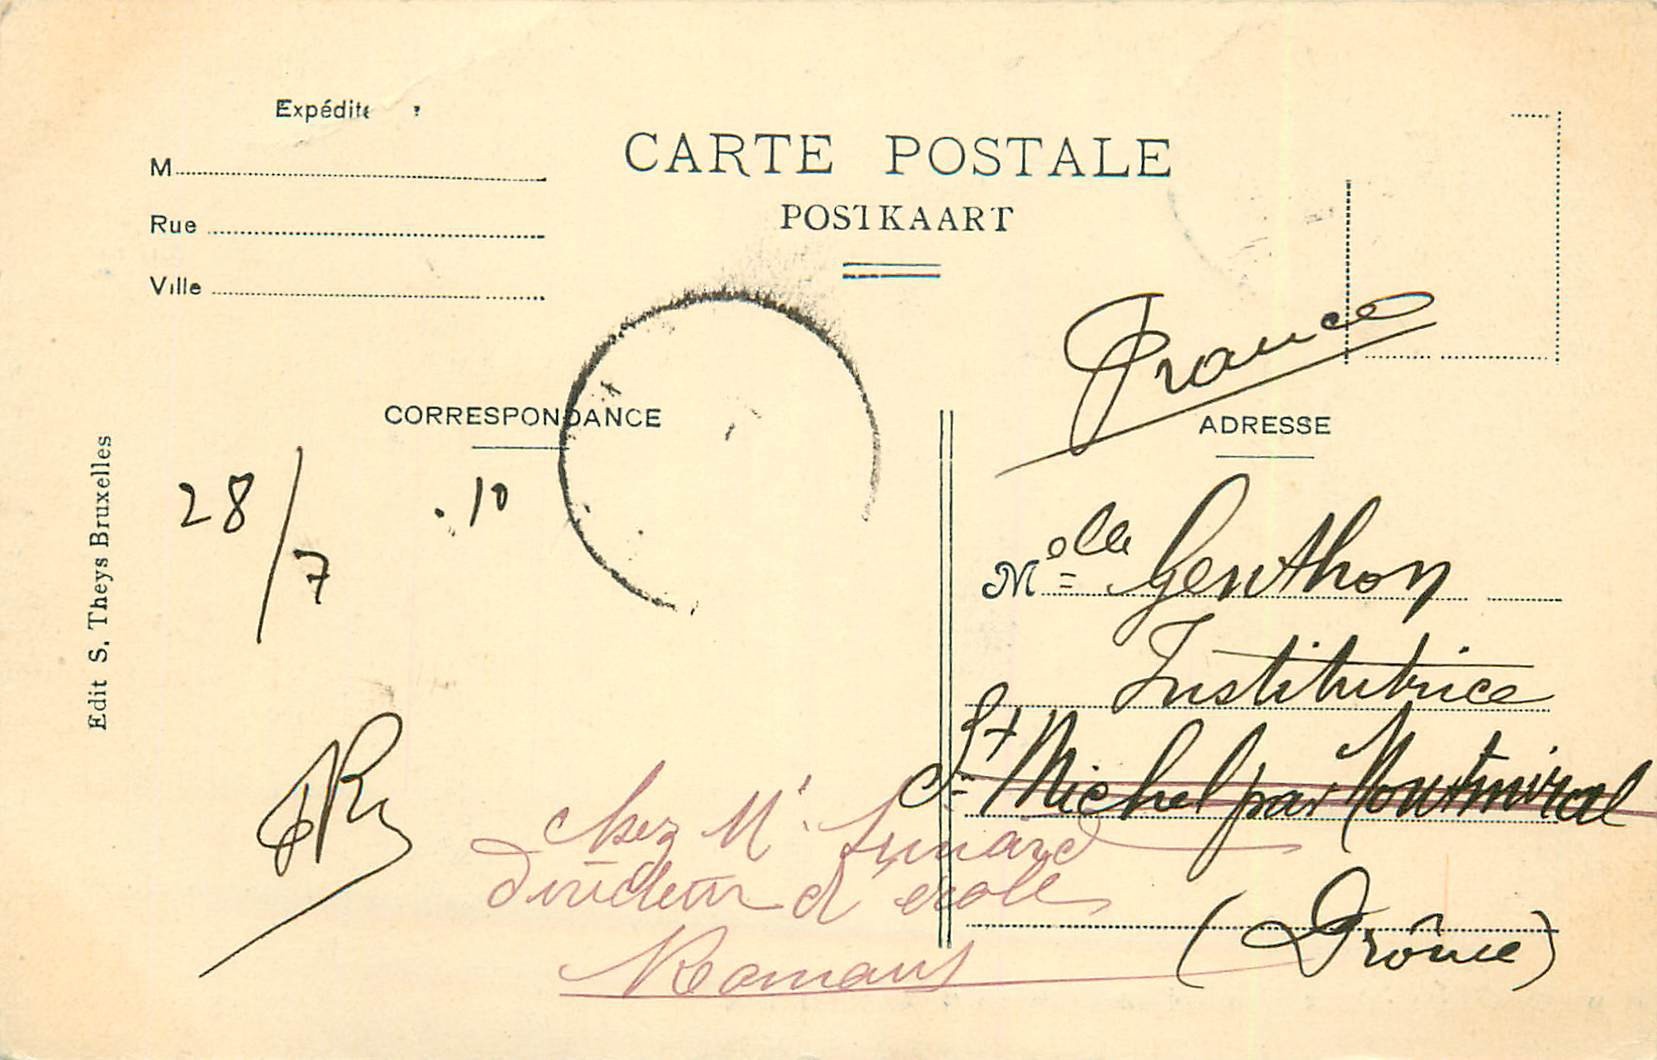 CARTE POSTALE
POSTKAART
M
Rue
Ville
CORRESPONDANCE
ADRESSE
Edit S. Theys Bruxelles
28/7 .10
France
Melle Genthon
Institutrice
St Michel par Montmiral
(Drôme)
chez Mr
directeur d'école
Romans